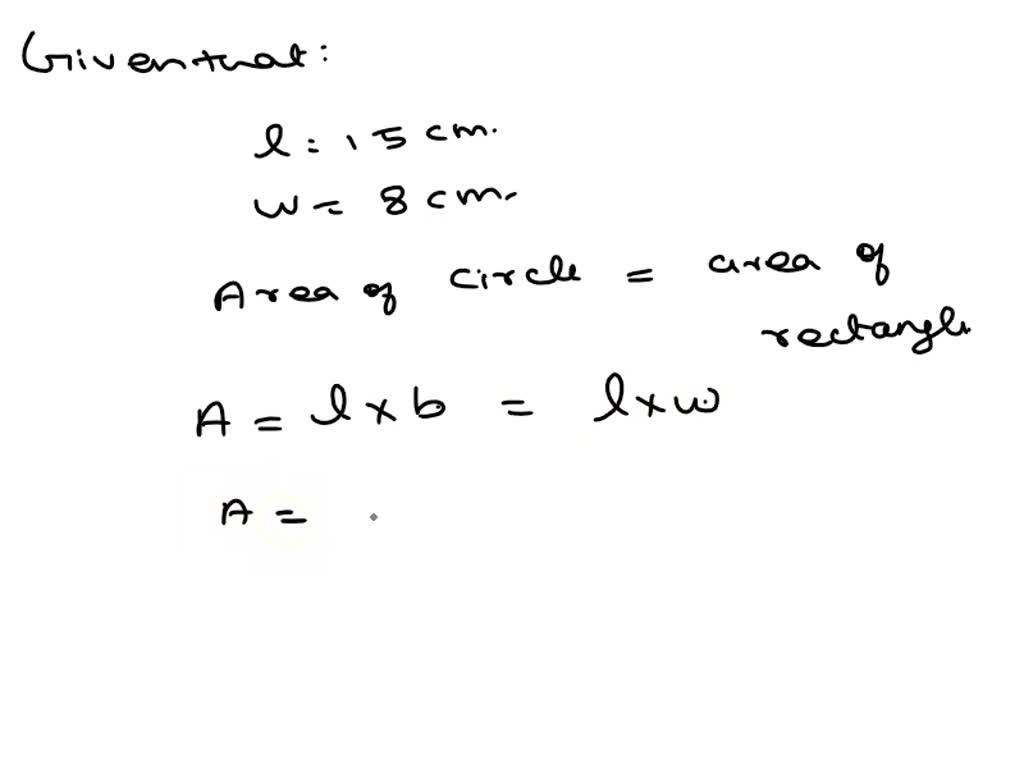 Given that:
l = 15 cm.
w = 8 cm.
Area of circle = area of
rectangle.
A = l × b = l × w
A =